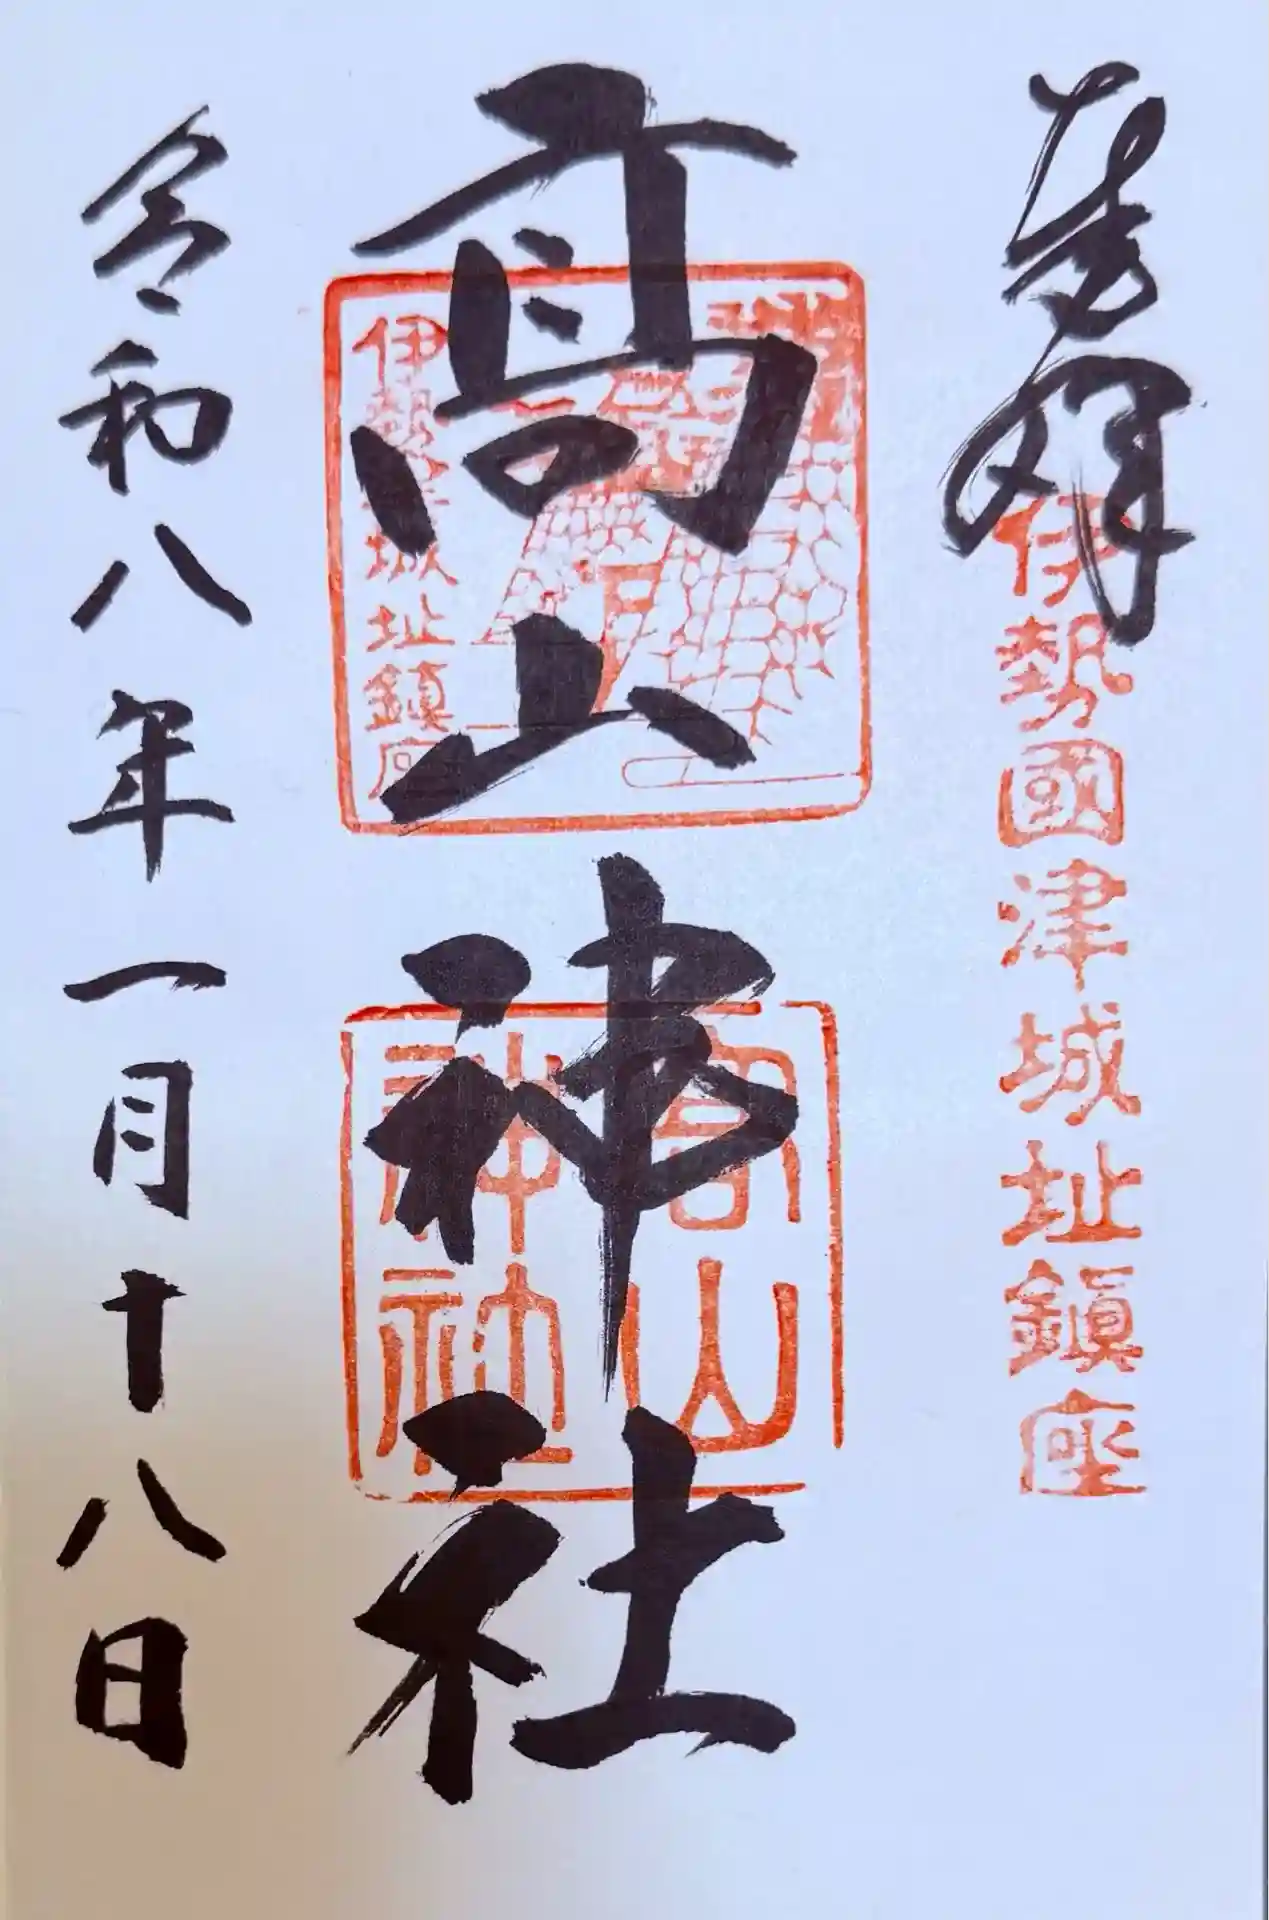 奉拝
伊勢國津城址鎮座
高山神社
伊勢津城址鎮座
高山
神社
令和八年一月十八日